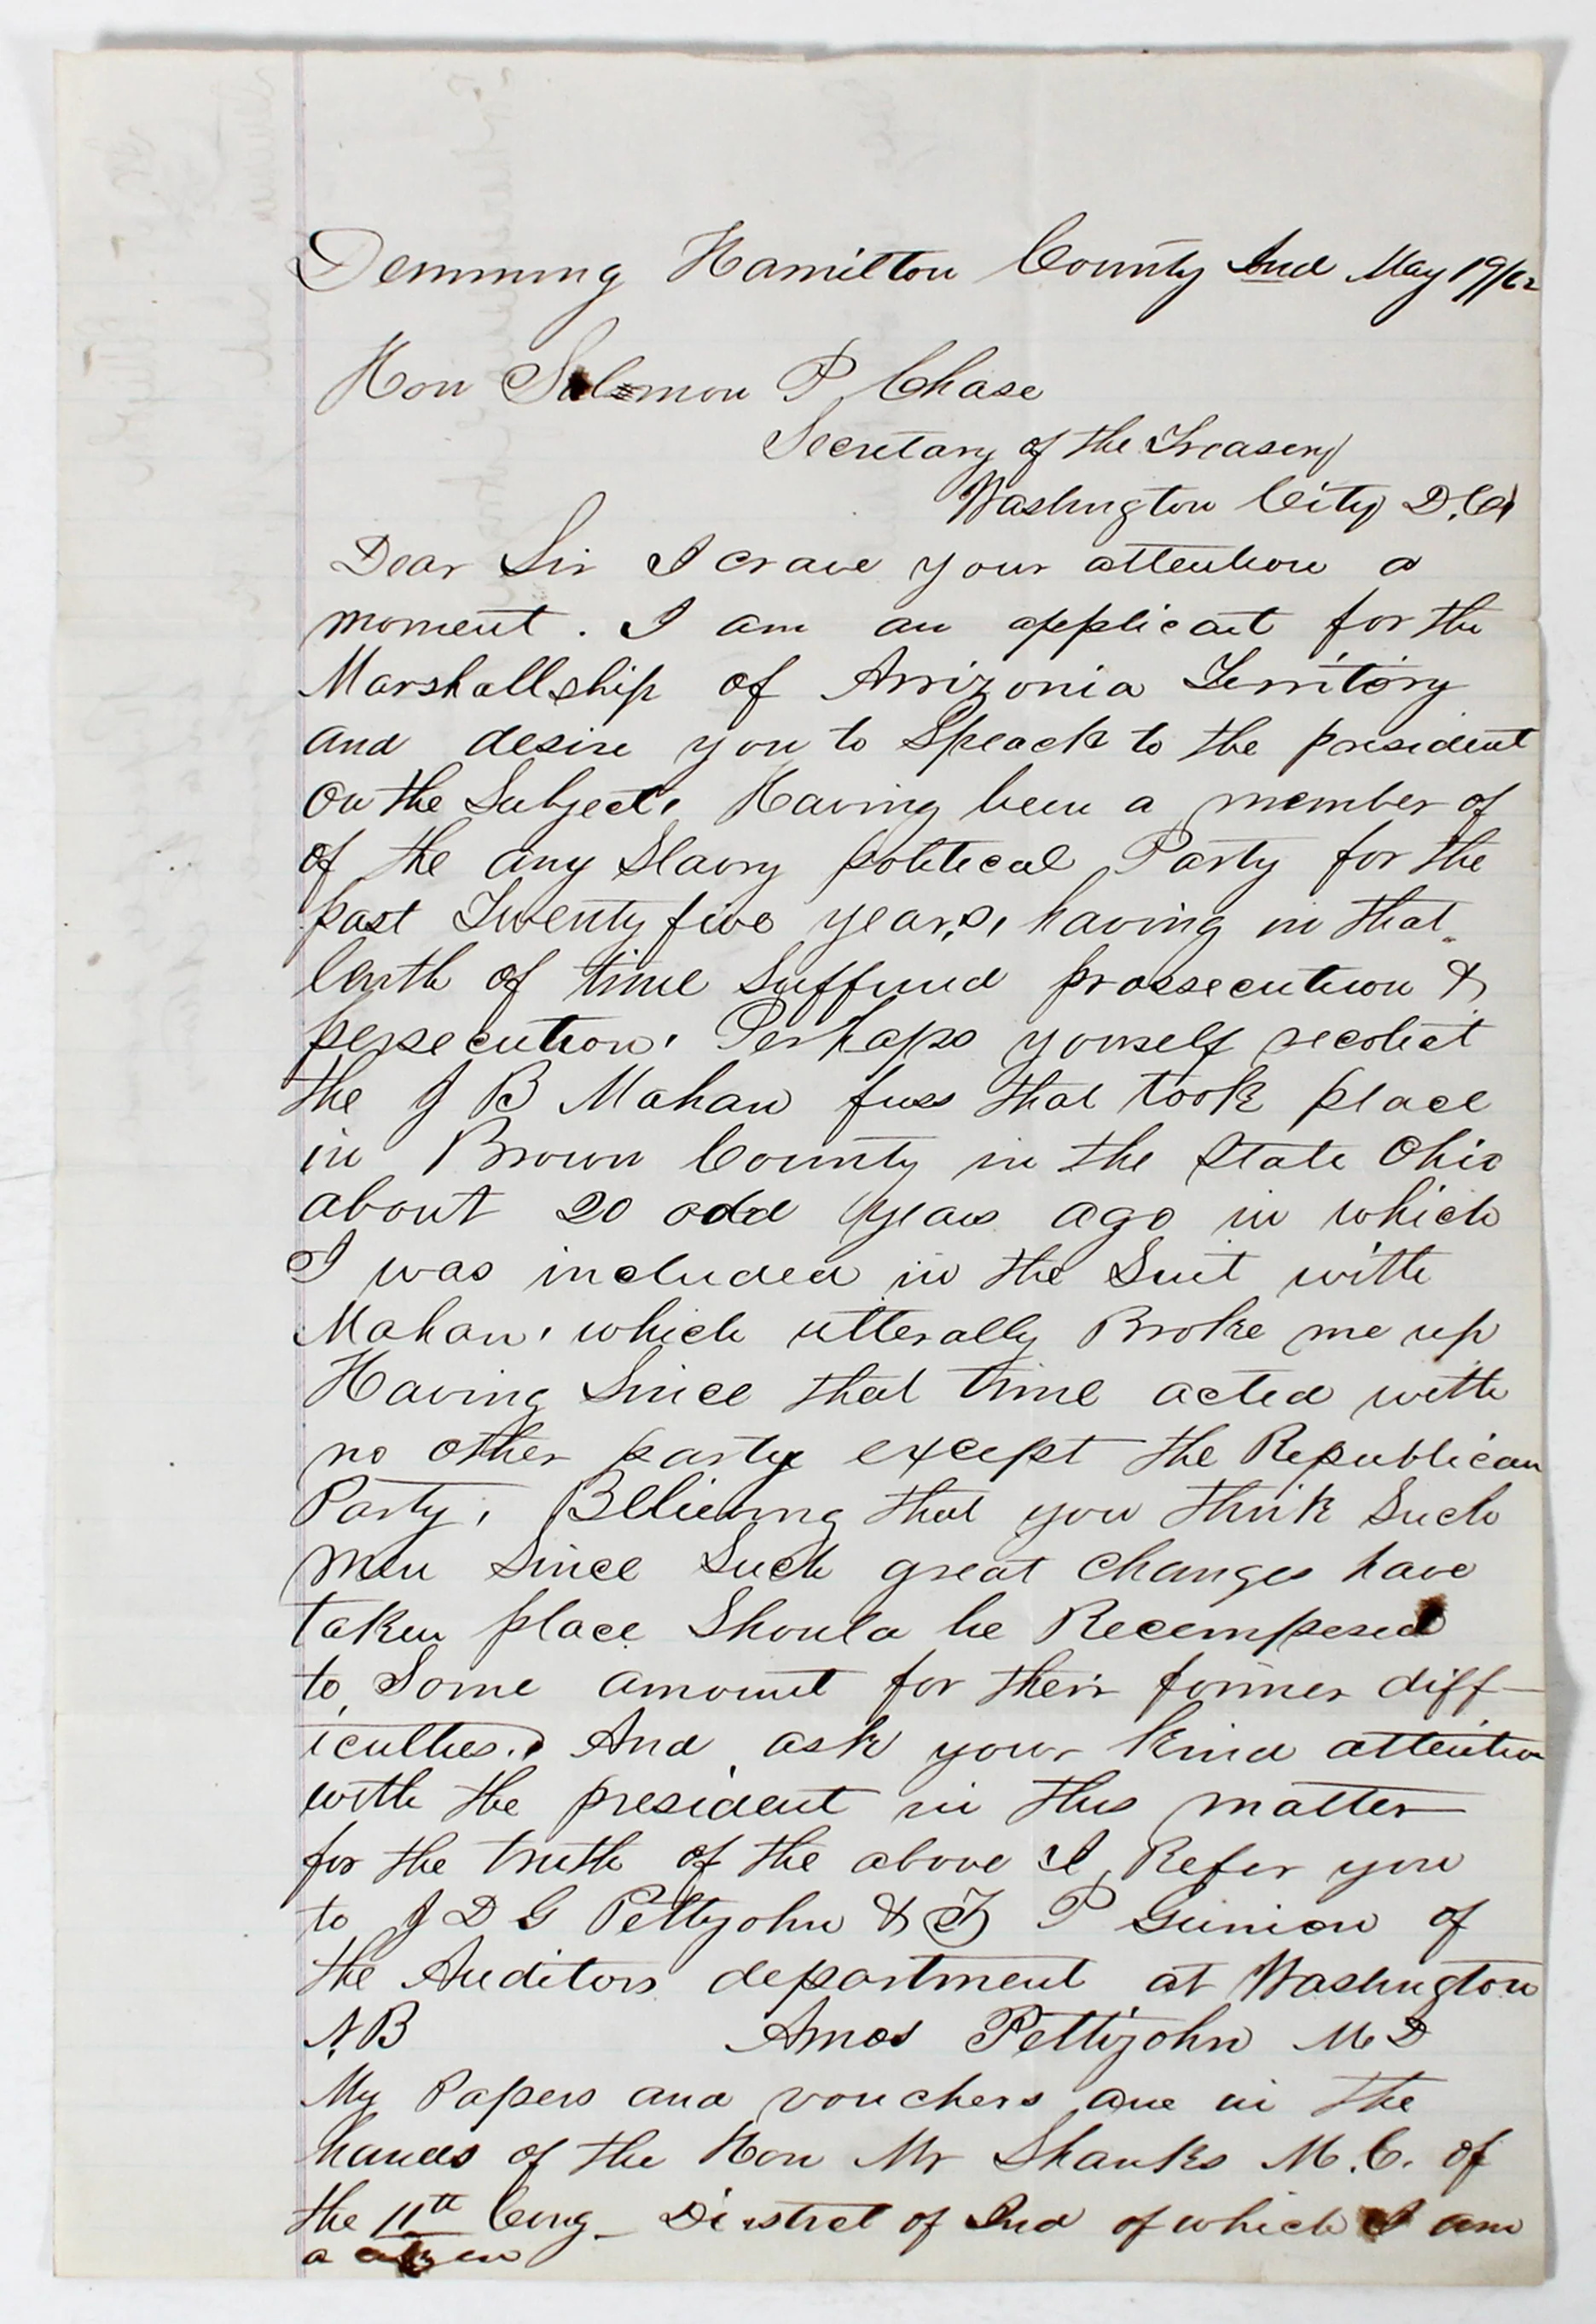 Demming Hamilton County Ind May 19/62
Hon Salmon P Chase
Secretary of the Treasury
Washington City D.C.
Dear Sir I crave your attention a
moment. I am an applicant for the
Marshallship of Arrizonia Territory
and desire you to Speack to the president
on the Subject, Having been a member of
of the any Slavry political Party for the
past Twenty five years, having in that
lenth of time Suffured prossecution &
persecution, Perhaps yourself recolect
the J B Mahan fuss that took place
in Brown County in the State Ohio
about 20 odd years ago in which
I was included in the Suit with
Mahan, which utterally Broke me up
Having Since that time acted with
no other party except the Republican
Party, Believing that you think Such
men Since Such great changes have
taken place Should be Recompesed
to Some amount for their former diff-
iculties. And ask your kind attention
with the president in this matter
for the truth of the above I Refer you
to J D G Pettyjohn & P Gunion of
the Auditors department at Washington
N.B Amos Pettijohn M D
My Papers and vouchers are in the
hands of the Hon Mr Shanks M.C. of
the 11th Cong- District of Ind of which I am
a citizen